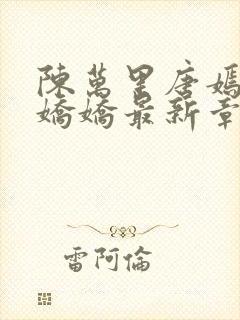 陳萬里唐嫣
嬌嬌最新章
雷阿倫